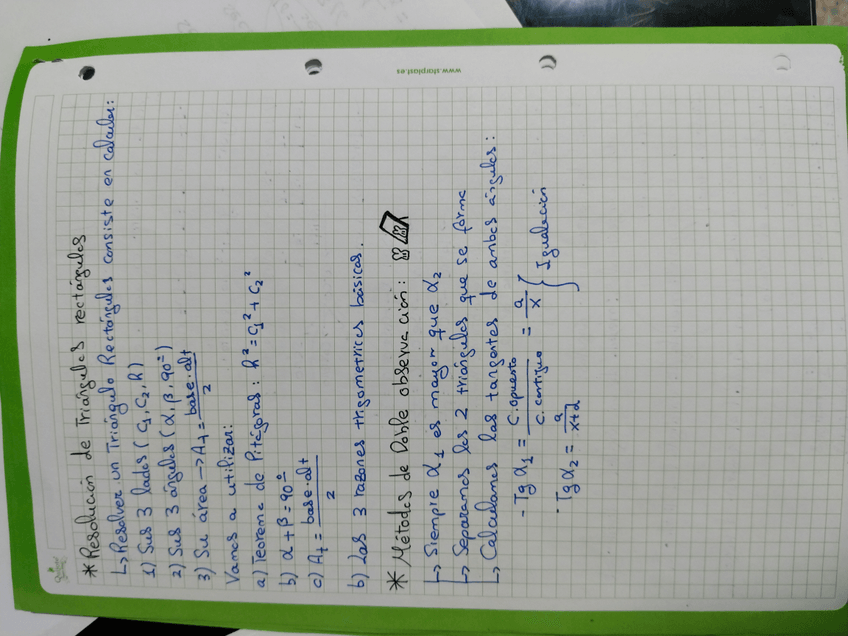 www.starplast.es
* Resolución de Triángulos rectángulos
↳ Resolver un Triángulo Rectángulos consiste en calcular:
1) Sus 3 lados (C₁, C₂, h)
2) Sus 3 ángulos (α, β, 90º)
3) Su área → A₊ = base·alt / 2
Vamos a utilizar:
a) Teorema de Pitágoras: h² = c₁² + c₂²
b) α + β = 90º
c) A₊ = base·alt / 2
b) Las 3 razones trigometrices básicas.
* Métodos de Doble observación:
↳ Siempre α₁ es mayor que α₂
↳ Separamos los 2 triángulos que se forma
↳ Calculamos las tangentes de ambos ángulos:
- Tg α₁ = C. opuesto / C. contiguo = a / x
- Tg α₂ = a / x+d
} Igualación